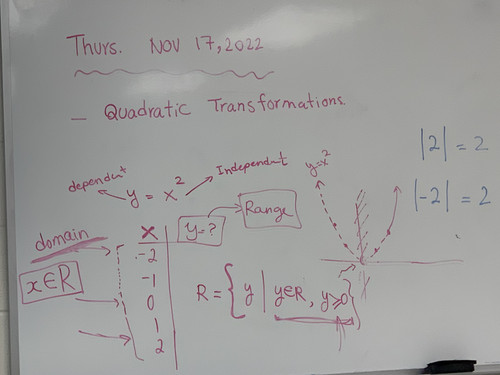 Thurs. Nov 17, 2022
- Quadratic Transformations.
dependent y = x² Independent
y=x²
|2| = 2
|-2| = 2
domain
x∈R
x
y=?
Range
-2
-1
0
1
2
R = { y | y∈R, y⩾0}